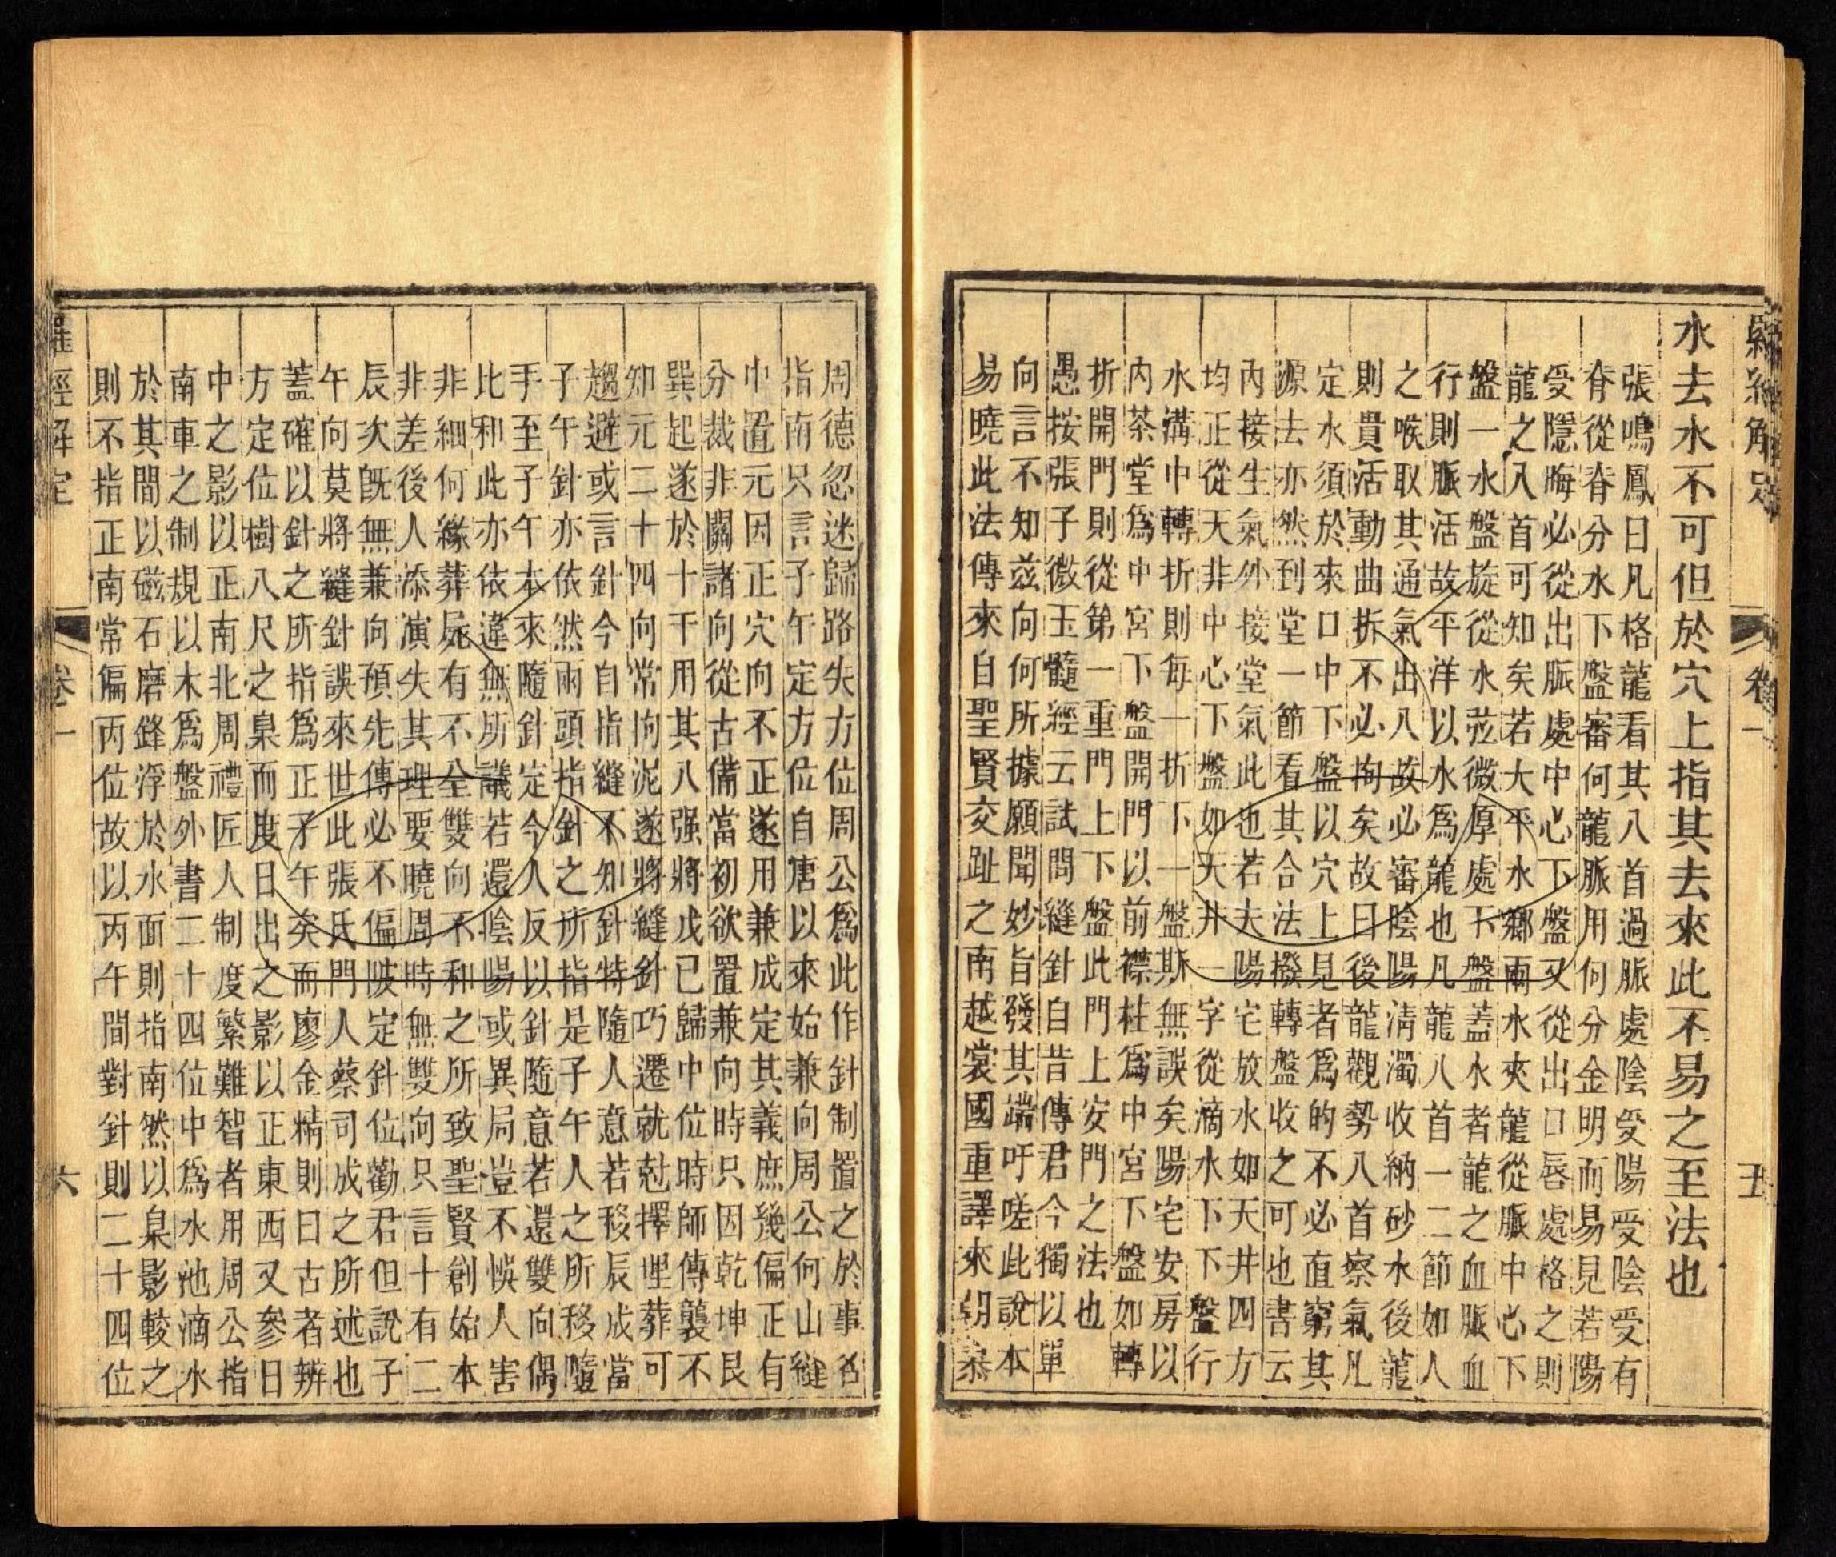 羅經解定
卷一
五
水去水不可但於穴上指其去來此不易之至法也
張鳴鳳曰凡格龍看其八首過脈處陰受陽受陰受有
脊從脊分水下盤審何龍脈用何分金明而易見若陽
受隱晦必從出脈處中心下盤又從出口唇處格之則
龍之入首可知矣若大平水鄉兩水夾龍從脈中心下
盤一水盤旋從水茫微厚處下盤蓋水者龍之血脈血
行則脈活故平洋以水為龍也凡龍八首一二節如人
之喉取其通氣出入故必審陰陽淸濁收納砂水後龍
則貴活動曲折不必拘矣故曰後龍觀勢八首察氣凡
定水須於來口中下盤以穴上見者為的不必直窮其
源去亦然到堂一節看其合法撥轉盤收之可也書云
內接生氣外接堂氣此也若夫陽宅放水如天井四方
均正從天非中心下盤如天井一字從滴水下下盤行
水溝中轉折則每一折下一盤斯無誤矣陽宅安房以
內茶堂為中宮下盤開門以前襟柱為中宮下盤如轉
折開門則從第一重門上下盤此門上安門之法也
愚按張子微玉髓經云試問縫針自昔傳君今獨以單
向言不知茲向何所據願聞妙旨發其端吁嗟此說本
易曉此法傳來自聖賢交趾之南越裳國重譯來朝恭
周德忽迷歸路失方位周公為此作針制置之於事名
指南只言子午定方位自唐以來始兼向周公何山縫
中置元因正穴向不正遂用兼成定其義庶幾偏正有
分裁非關諸向從古備當初欲置兼向時只因乾坤艮
巽起遂於十干用其八强將戊已歸中位時師傳襲不
知元二十四向常拘泥遂將縫針巧遷就尅擇埋葬可
趨避或言針今自指縫不知針特隨人意若移辰成當
子午針亦依然兩頭指針之所指是子午人之所移隨
手至子午本來隨針定今人反以針隨意若還雙向偶
比和此亦依違無所議若還陰陽或異局豈不悞人害
非細何緣葬屍有不全雙向不和之所致聖賢創始本
非差後人添演失其理要曉周時無雙向只言十有二
辰次旣無兼向預先傳必不偏陂定針位勸君但說子
午向莫將縫針誤來世此張氏門人蔡司成之所述也
蓋確以針之所指為正子午矣而廖金精則曰古者辨
方定位樹八尺之臬而度日出之影以正東西又參日
中之影以正南北周禮匠人制度繁難智者用周公指
南車之制規以木為盤外書二十四位中為水池滴水
於其間以磁石磨鋒浮於水面則指南然以臬影較之
則不指正南常偏丙位故以丙午間對針則二十四位
羅經解定
卷一
六